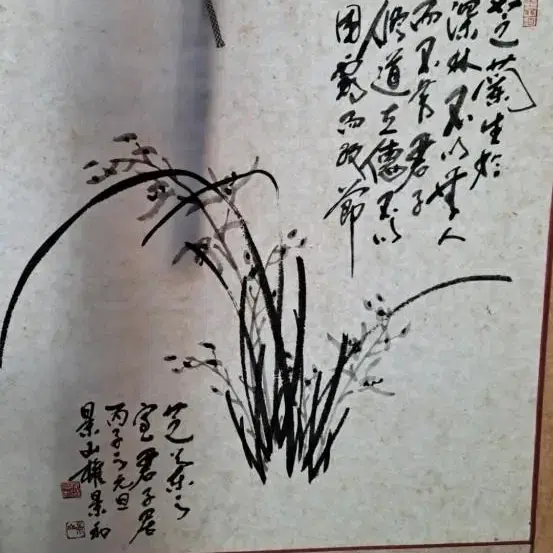 芝蘭生於
深林不以無人
而不芳君子
修道立德不以
困窮而改節
芝蘭之
室君子居
丙子元旦
景山權景和